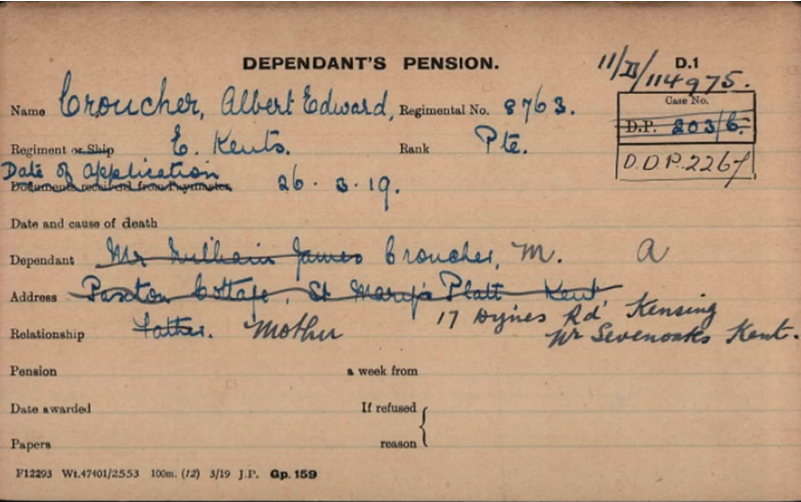 DEPENDANT'S PENSION.
11/D/114975.
D.1
Name Croucher, Albert Edward, Regimental No. 8763.
Case No.
D.P. 203/6.
D.D.P. 2267
Regiment or Ship E. Kents. Rank Pte.
Date of Application
Documents required from Paymaster, 26. 3. 19.
Date and cause of death
Dependant Mr William James Croucher, M. A
Address Paxton Cottage, St Mary's Platt Kent
17 Dynes Rd Kensing
Nr Sevenoaks Kent.
Relationship Father. Mother
Pension a week from
Date awarded If refused
Papers reason
F12293 Wt.47401/2553 100m. (12) 3/19 J.P. Gp. 159